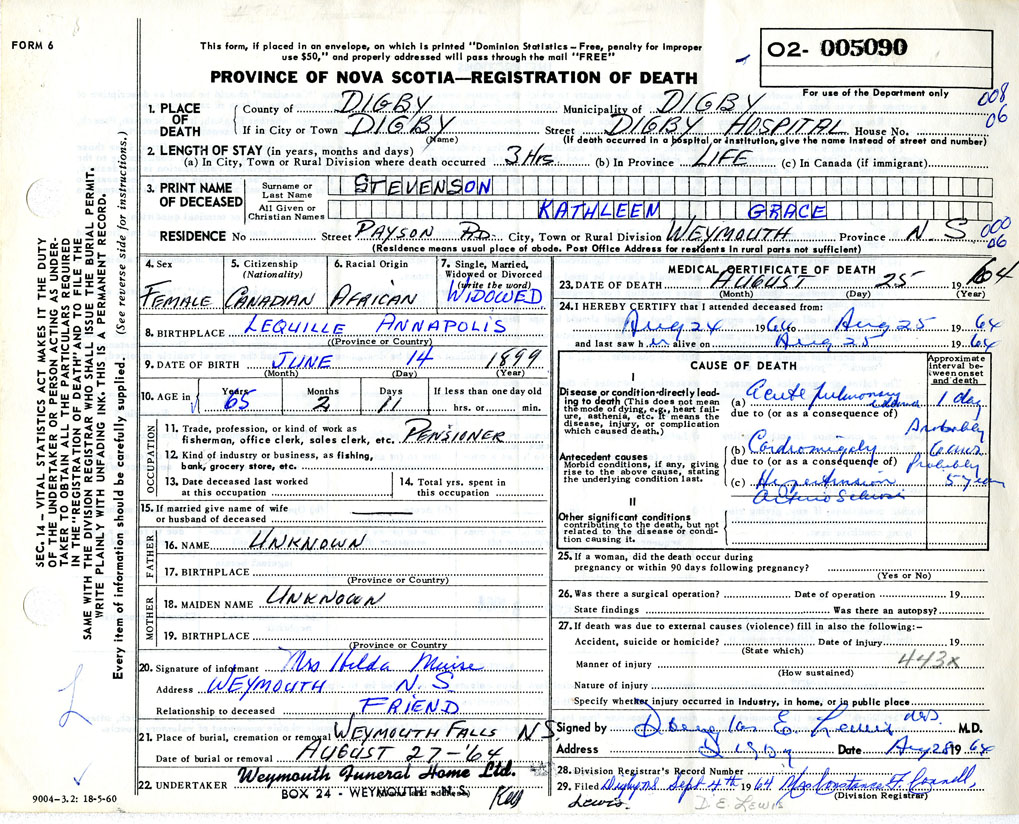 FORM 6
This form, if placed in an envelope, on which is printed "Dominion Statistics – Free, penalty for improper
use $50," and properly addressed will pass through the mail "FREE"
PROVINCE OF NOVA SCOTIA—REGISTRATION OF DEATH
02- 005090
For use of the Department only
008
06
1. PLACE OF DEATH
County of DIGBY Municipality of DIGBY
If in City or Town DIGBY Street DIGBY HOSPITAL House No.
(Name) (If death occurred in a hospital or institution, give the name instead of street and number)
2. LENGTH OF STAY (in years, months and days)
(a) In City, Town or Rural Division where death occurred 3 Hrs (b) In Province LIFE (c) In Canada (if immigrant)
3. PRINT NAME OF DECEASED
Surname or Last Name STEVENSON
All Given or Christian Names KATHLEEN GRACE
RESIDENCE No Street PAYSON RD. City, Town or Rural Division WEYMOUTH Province N.S
(Residence means usual place of abode. Post Office Address for residents in rural parts not sufficient)
000
06
4. Sex 5. Citizenship (Nationality) 6. Racial Origin 7. Single, Married, Widowed or Divorced (write the word)
FEMALE CANADIAN AFRICAN WIDOWED
8. BIRTHPLACE LEQUILLE ANNAPOLIS
(Province or Country)
9. DATE OF BIRTH JUNE 14 1899
(Month) (Day) (Year)
10. AGE in Years Months Days If less than one day old
65 2 11 hrs. or min.
OCCUPATION
11. Trade, profession, or kind of work as
fisherman, office clerk, sales clerk, etc. PENSIONER
12. Kind of industry or business, as fishing,
bank, grocery store, etc.
13. Date deceased last worked
at this occupation
14. Total yrs. spent in
this occupation
15. If married give name of wife
or husband of deceased
FATHER
16. NAME UNKNOWN
17. BIRTHPLACE
(Province or Country)
MOTHER
18. MAIDEN NAME UNKNOWN
19. BIRTHPLACE
(Province or Country)
20. Signature of informant Mrs Hilda Muise
Address WEYMOUTH N.S.
Relationship to deceased FRIEND
21. Place of burial, cremation or removal WEYMOUTH FALLS N.S.
Date of burial or removal AUGUST 27-'64
22. UNDERTAKER Weymouth Funeral Home Ltd.
(Name and address)
BOX 24 - WEYMOUTH - N.S.
9004–3.2: 18-5-60
MEDICAL CERTIFICATE OF DEATH
23. DATE OF DEATH AUGUST 25 19 64
(Month) (Day) (Year)
24. I HEREBY CERTIFY that I attended deceased from:
Aug 24 1964 to Aug 25 19 64
and last saw h er alive on Aug 25 19 64
CAUSE OF DEATH
Approximate interval between onset and death
I
Disease or condition directly leading to death (This does not mean the mode of dying, e.g., heart failure, asthenia, etc. It means the disease, injury, or complication which caused death.)
(a) Acute pulmonary edema 1 day
due to (or as a consequence of)
Antecedent causes
Morbid conditions, if any, giving rise to the above cause, stating the underlying condition last.
(b) Cardiomegaly Probably
due to (or as a consequence of) Probably
(c) Hypertension 5 years
II
Other significant conditions
contributing to the death, but not related to the disease or condition causing it.
25. If a woman, did the death occur during
pregnancy or within 90 days following pregnancy?
(Yes or No)
26. Was there a surgical operation? Date of operation 19
State findings Was there an autopsy?
27. If death was due to external causes (violence) fill in also the following:–
Accident, suicide or homicide? Date of injury 19
(State which)
Manner of injury 443x
(How sustained)
Nature of injury
Specify whether injury occurred in industry, in home, or in public place
Signed by Douglas E. Lewis M.D.
Address Digby Date Aug 28 19 64
28. Division Registrar's Record Number
29. Filed Digby NS Sept 4th 1964 Mrs Constance F. Connell,
(Division Registrar)
Lewis. D.E. LEWIS
SEC. 14 – VITAL STATISTICS ACT MAKES IT THE DUTY
OF THE UNDERTAKER OR PERSON ACTING AS UNDERTAKER
TO OBTAIN ALL THE PARTICULARS REQUIRED
IN THE "REGISTRATION OF DEATH" AND TO FILE THE
SAME WITH THE DIVISION REGISTRAR WHO SHALL ISSUE THE BURIAL PERMIT.
WRITE PLAINLY WITH UNFADING INK. THIS IS A PERMANENT RECORD.
Every item of information should be carefully supplied. (See reverse side for instructions.)